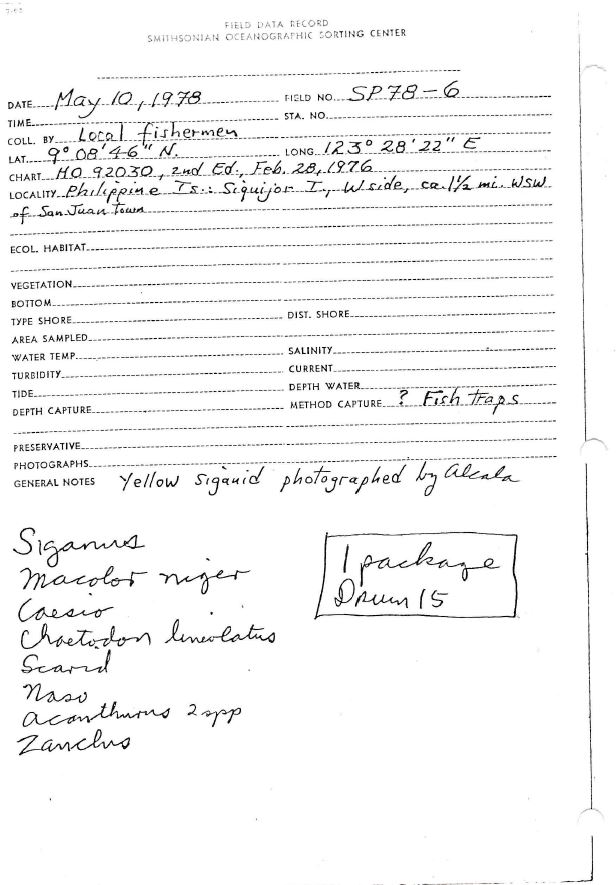 FIELD DATA RECORD
SMITHSONIAN OCEANOGRAPHIC SORTING CENTER
DATE May 10, 1978 FIELD NO. SP78-6
TIME STA. NO.
COLL. BY Local fishermen
LAT. 9° 08' 46" N. LONG. 123° 28' 22" E
CHART HO 92030, 2nd Ed., Feb. 28, 1976
LOCALITY Philippine Is.: Siquijor I., W side, ca. 1½ mi. WSW
of San Juan Town
ECOL. HABITAT
VEGETATION
BOTTOM
TYPE SHORE DIST. SHORE
AREA SAMPLED
WATER TEMP. SALINITY
TURBIDITY CURRENT
TIDE DEPTH WATER
DEPTH CAPTURE METHOD CAPTURE ? Fish traps
PRESERVATIVE
PHOTOGRAPHS
GENERAL NOTES Yellow siganid photographed by Alcala
Siganus
Macolor niger
Caesio
Chaetodon lineolatus
Scarid
Naso
Acanthurus 2 spp
Zanclus
1 package
Drum 15